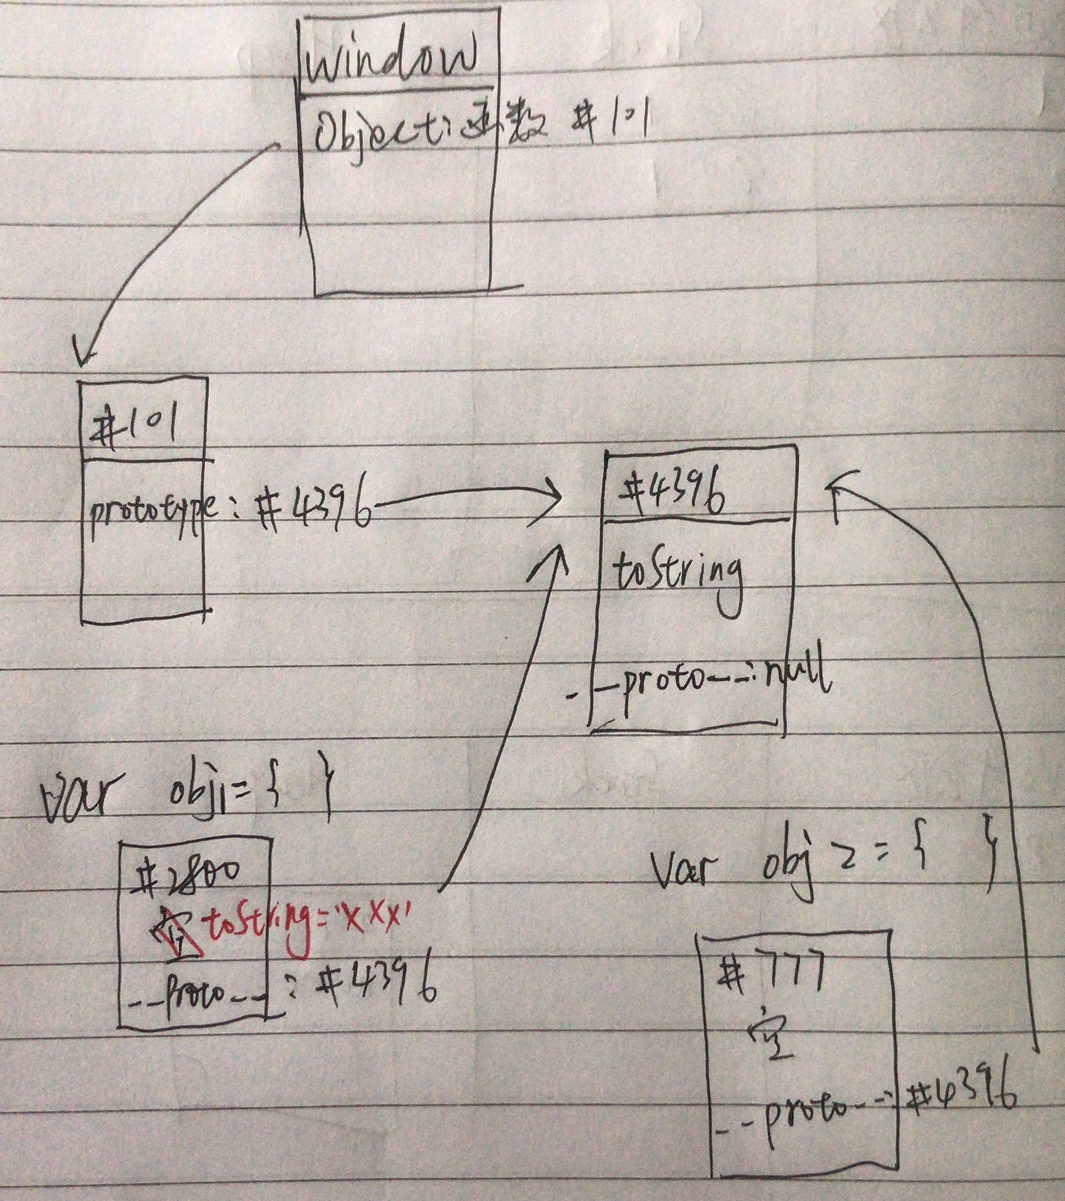 window
Object: 函数 #101
#101
prototype: #4396
#4396
toString
--proto--: null
var obj1 = { }
#2800
空 toString='xxx'
--proto--: #4396
var obj2 = { }
#777
空
--proto--: #4396